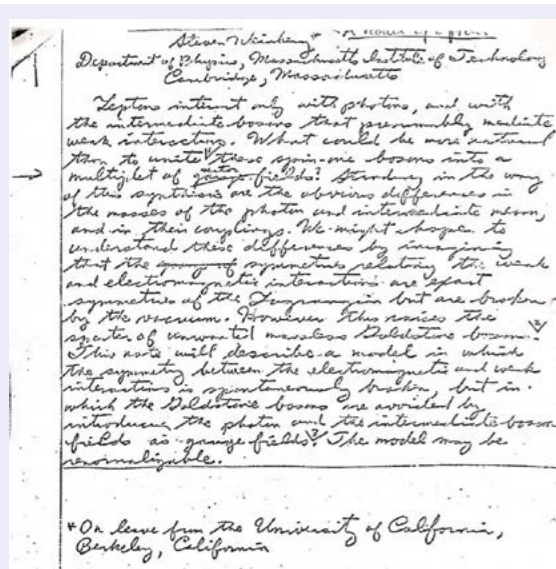 A Model of Leptons
Steven Weinberg*
Department of Physics, Massachusetts Institute of Technology
Cambridge, Massachusetts
Leptons interact only with photons, and with
the intermediate bosons that presumably mediate
weak interactions. What could be more natural
than to unite these spin-one bosons into a
multiplet of fields? Standing in the way
of this synthesis are the obvious differences in
the masses of the photon and intermediate meson,
and in their couplings. We might hope to
understand these differences by imagining
that the symmetries relating the weak
and electromagnetic interactions are exact
symmetries of the Lagrangian but are broken
by the vacuum. However this raises the
specter of unwanted massless Goldstone bosons.
This note will describe a model in which
the symmetry between the electromagnetic and weak
interactions is spontaneously broken, but in
which the Goldstone bosons are avoided by
introducing the photon and the intermediate-boson
fields as gauge fields. The model may be
renormalizable.
*On leave from the University of California,
Berkeley, California